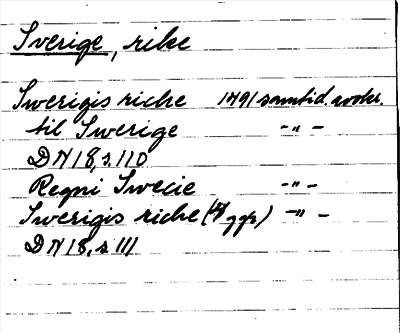 Sverige, rike
Swerigis riche 1491 samtid. avskr.
til Swerige -"-
DN 18, s. 110
Regni Swecie -"-
Swerigis riche (4 ggr) -"-
DN 18, s 111